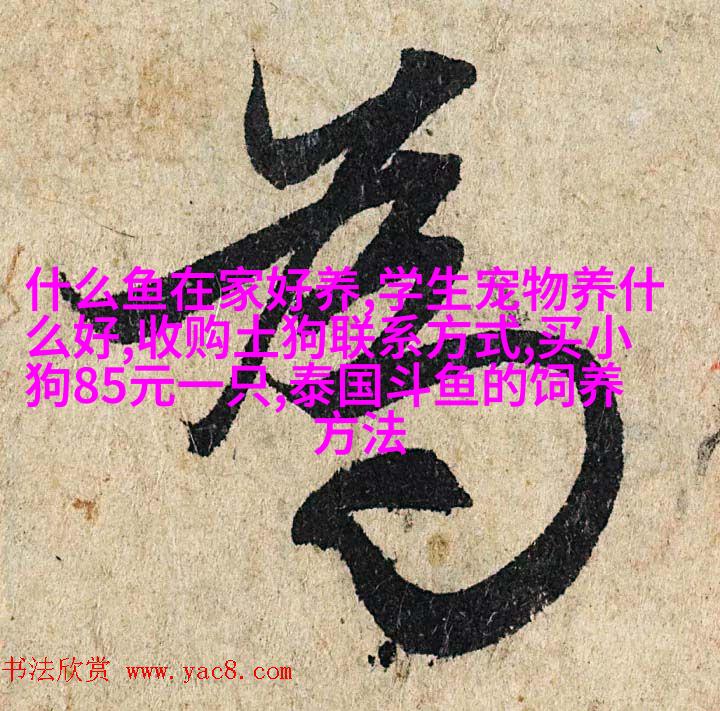 什么鱼在家好养,学生宠物养什
么好,收购土狗联系方式,买小
狗85元一只,泰国斗鱼的饲养
方法
书法欣赏 www.yac8.com